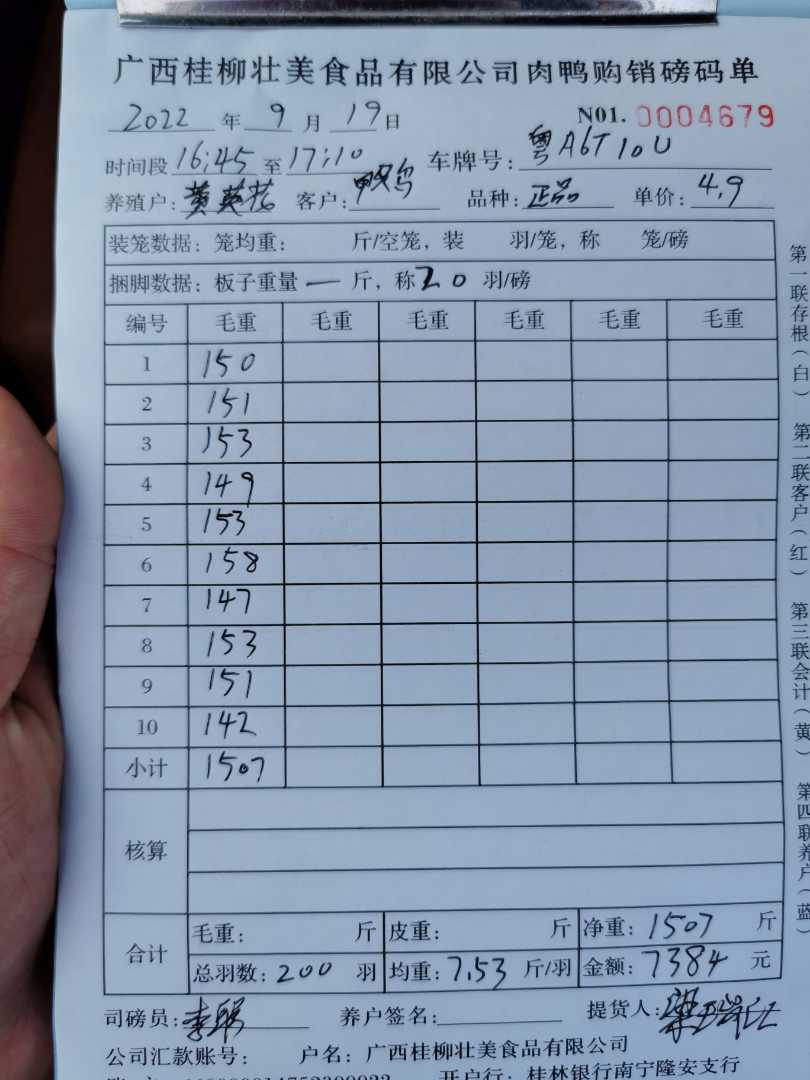 广西桂柳壮美食品有限公司肉鸭购销磅码单
2022 年 9 月 19 日 N01. 0004679
时间段 16:45 至 17:10 车牌号: 粤A6T10U
养殖户: 黄英花 客户: 品种: 正品 单价: 4.9
装笼数据: 笼均重: 斤/空笼, 装 羽/笼, 称 笼/磅
捆脚数据: 板子重量 一 斤, 称 20 羽/磅
编号 毛重 毛重 毛重 毛重 毛重 毛重
1 150
2 151
3 153
4 149
5 153
6 158
7 147
8 153
9 151
10 142
小计 1507
核算
合计 毛重: 斤 皮重: 斤 净重: 1507 斤
总羽数: 200 羽 均重: 7.53 斤/羽 金额: 7384 元
司磅员: 养户签名: 提货人:
公司汇款账号: 户名: 广西桂柳壮美食品有限公司
开户行: 桂林银行南宁隆安支行
第一联存根(白) 第二联客户(红) 第三联会计(黄) 第四联养户(蓝)